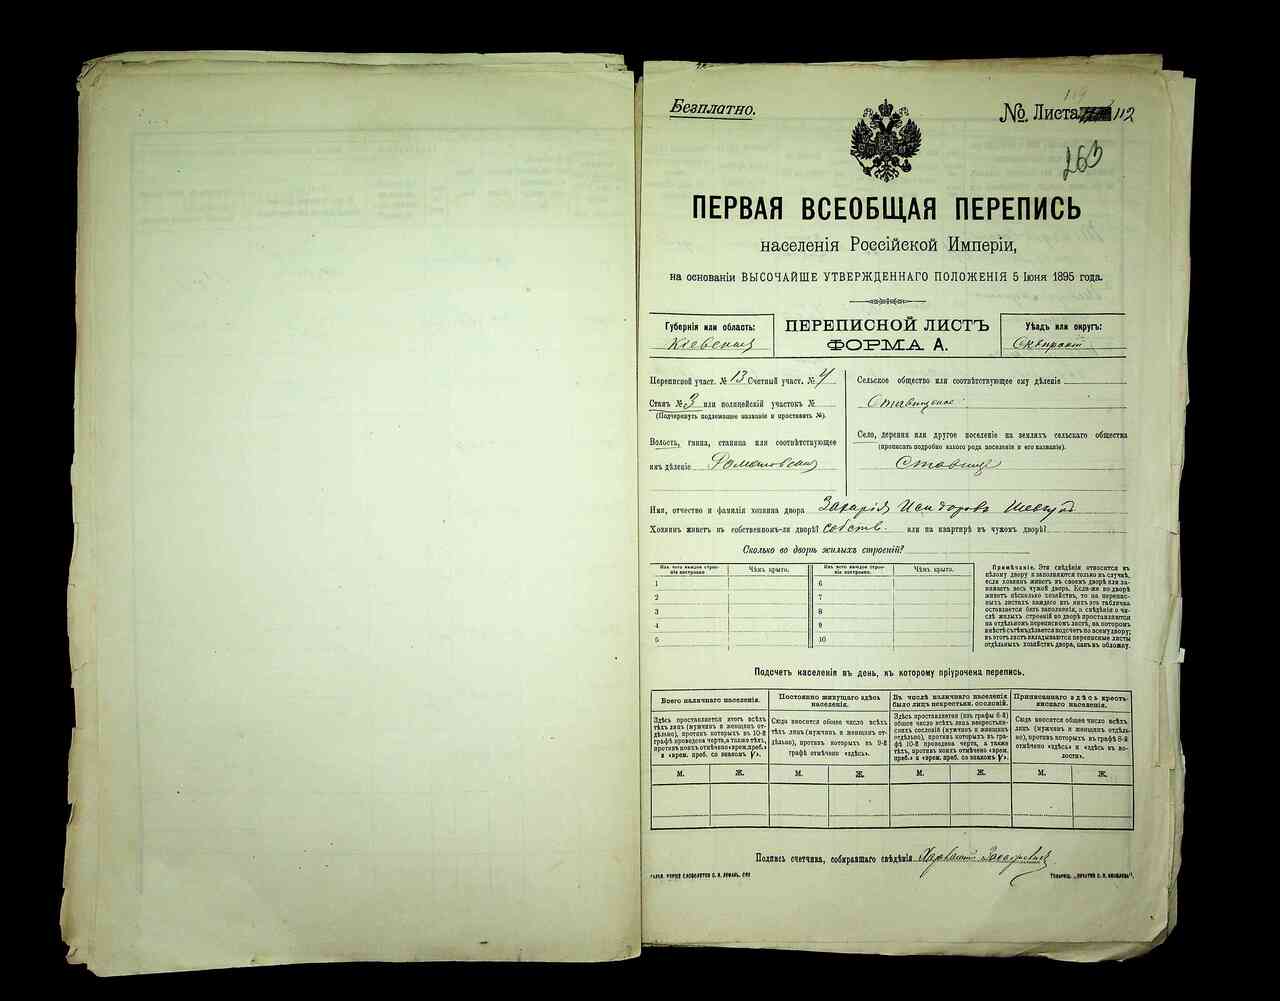 Безплатно.
№ Листа 112
263
ПЕРВАЯ ВСЕОБЩАЯ ПЕРЕПИСЬ
населенія Россійской Имперіи,
на основаніи ВЫСОЧАЙШЕ УТВЕРЖДЕННАГО ПОЛОЖЕНІЯ 5 Іюня 1895 года.
Губернія или область:
Кіевская
ПЕРЕПИСНОЙ ЛИСТЪ
ФОРМА А.
Уѣздъ или округъ:
Сквирскій
Переписной участ. № 13 Счетный участ. № 4
Станъ № 3 или полицейскій участокъ №
(Подчеркнуть подлежащее названіе и проставить №).
Волость, гмина, станица или соотвѣтствующее
имъ дѣленіе Романовская
Сельское общество или соотвѣтствующее ему дѣленіе
Ставищское
Село, деревня или другое поселеніе на земляхъ сельскаго общества
(прописать подробно какого рода поселеніе и его названіе).
Ставище
Имя, отчество и фамилія хозяина двора Захарія Исидоровъ
Хозяинъ живетъ въ собственномъ-ли дворѣ? собств. или на квартирѣ въ чужомъ дворѣ?
Сколько во дворѣ жилыхъ строеній?
Изъ чего каждое строеніе построено.
Чѣмъ крыто.
Изъ чего каждое строеніе построено.
Чѣмъ крыто.
1 6
2 7
3 8
4 9
5 10
Примѣчаніе. Эти свѣдѣнія относятся къ
цѣлому двору и заполняются только въ случаѣ,
если хозяинъ живетъ въ своемъ дворѣ или за-
нимаетъ весь чужой дворъ. Если-же во дворѣ
живетъ нѣсколько хозяйствъ, то на перепис-
ныхъ листахъ каждаго изъ нихъ эта табличка
оставляется безъ заполненія, а свѣдѣнія о чи-
слѣ жилыхъ строеній во дворѣ проставляются
на отдѣльномъ переписномъ листѣ, на которомъ
вмѣстѣ съ тѣмъ дѣлается подсчетъ по всему двору;
въ этотъ листъ вкладываются переписные листы
отдѣльныхъ хозяйствъ двора, какъ въ обложку.
Подсчетъ населенія въ день, къ которому пріурочена перепись.
Всего наличнаго населенія.
Здѣсь проставляется итогъ всѣхъ
тѣхъ лицъ (мужчинъ и женщинъ от-
дѣльно), противъ которыхъ въ 10-й
графѣ проведена черта, а также тѣхъ,
противъ коихъ отмѣчено «врем. преб.»
и «врем. преб. со знакомъ V».
Постоянно живущаго здѣсь
населенія.
Сюда вносится общее число всѣхъ
тѣхъ лицъ (мужчинъ и женщинъ от-
дѣльно), противъ которыхъ въ 9-й
графѣ отмѣчено «здѣсь».
Въ числѣ наличнаго населенія
было лицъ некрестьян. сословій.
Здѣсь проставляется (изъ графы 6-й)
общее число всѣхъ лицъ некрестьян-
скихъ сословій (мужчинъ и женщинъ
отдѣльно), противъ которыхъ въ гра-
фѣ 10-й проведена черта, а также
тѣхъ, противъ коихъ отмѣчено «врем.
преб.» и «врем. преб. со знакомъ V».
Приписаннаго здѣсь кресть-
янскаго населенія.
Сюда вносится общее число всѣхъ
лицъ (мужчинъ и женщинъ отдѣль-
но), противъ которыхъ въ графѣ 8-й
отмѣчено «здѣсь» и «здѣсь въ во-
лости».
М. Ж. М. Ж. М. Ж. М. Ж.
Подпись счетчика, собиравшаго свѣдѣнія